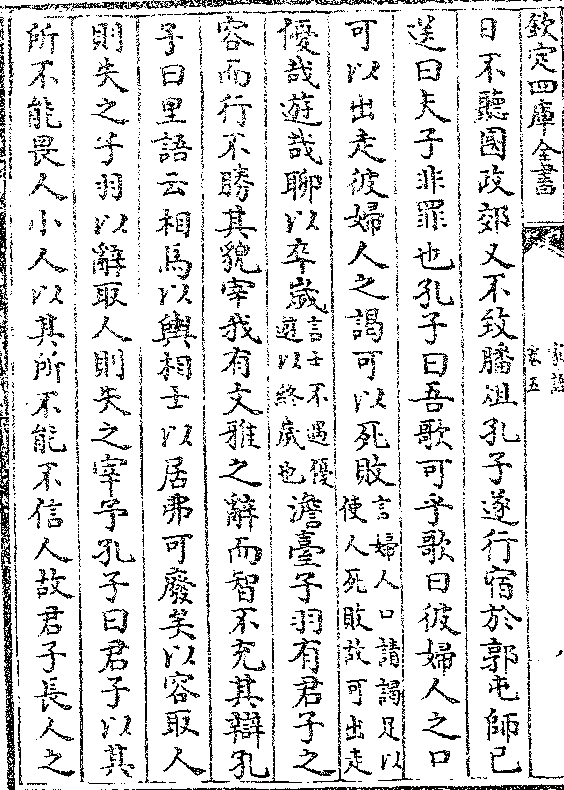 欽定四庫全書
家語
卷五
日不聽國政郊又不致膰俎孔子遂行宿於郭屯師已
送曰夫子非罪也孔子曰吾歌可乎歌曰彼婦人之口
可以出走彼婦人之謁可以死敗言婦人口請謁足以使人死敗故可出走
優哉遊哉聊以卒歲言士不遇優遊以終歲也澹臺子羽有君子之
容而行不勝其貌宰我有文雅之辭而智不充其辯孔
子曰里語云相馬以輿相士以居弗可廢矣以容取人
則失之子羽以辭取人則失之宰予孔子曰君子以其
所不能畏人小人以其所不能不信人故君子長人之